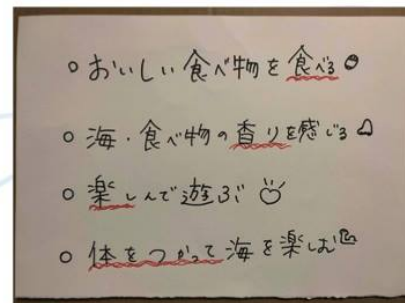 ○ おいしい食べ物を食べる
○ 海・食べ物の香りを感じる
○ 楽しんで遊ぶ
○ 体をつかって海を楽しむ